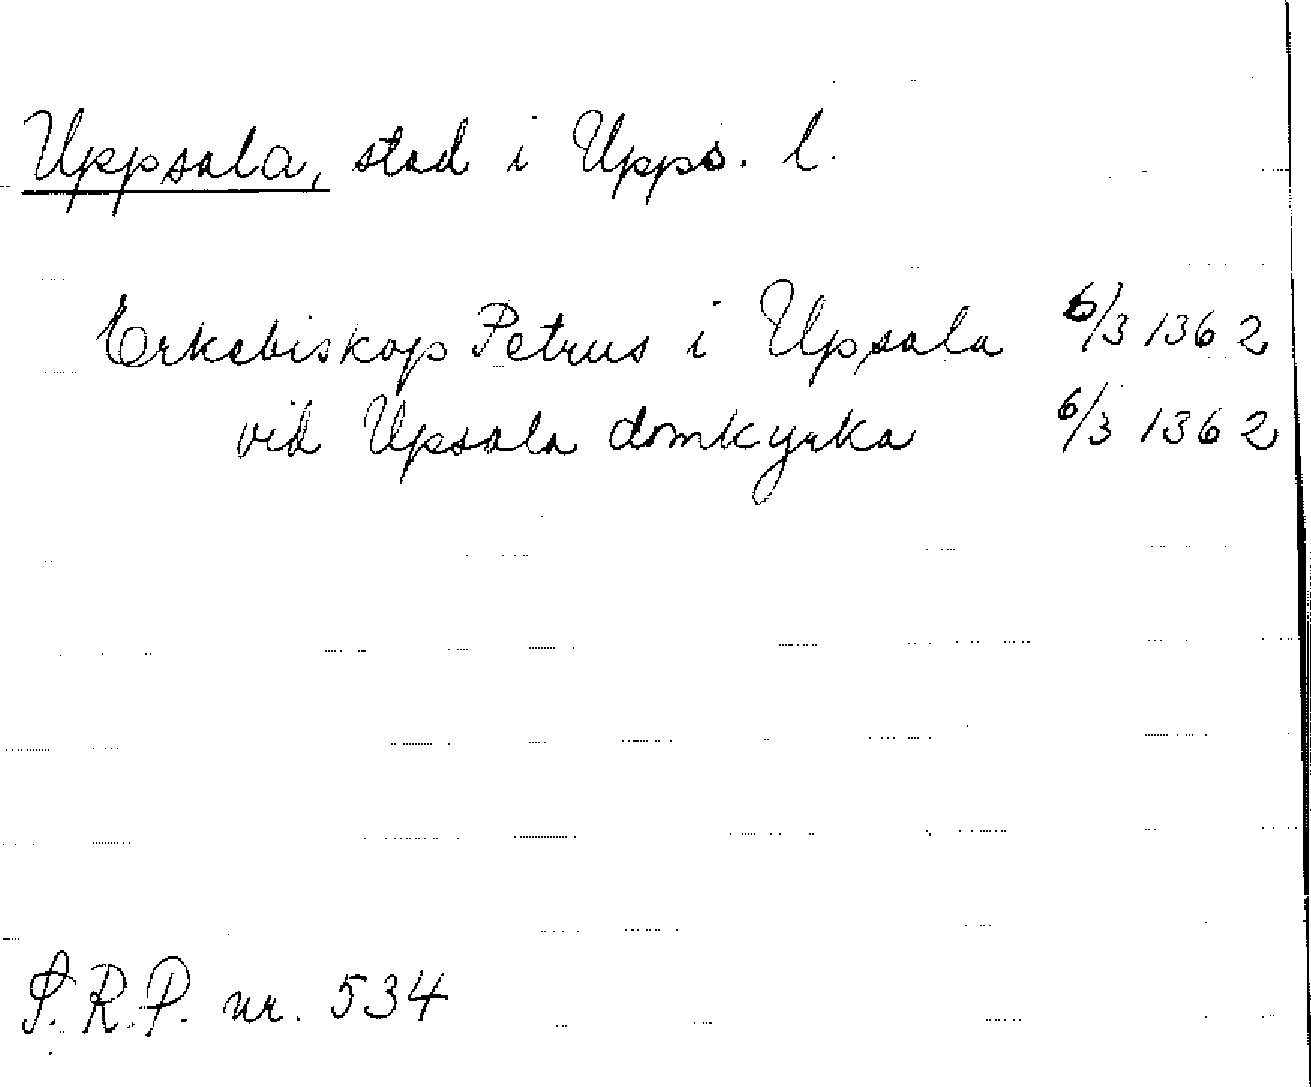 Uppsala, stad i Upps. l.
Erkebiskop Petrus i Upsala 6/3 1362
vid Upsala domkyrka 6/3 1362
S.R.P. nr. 534